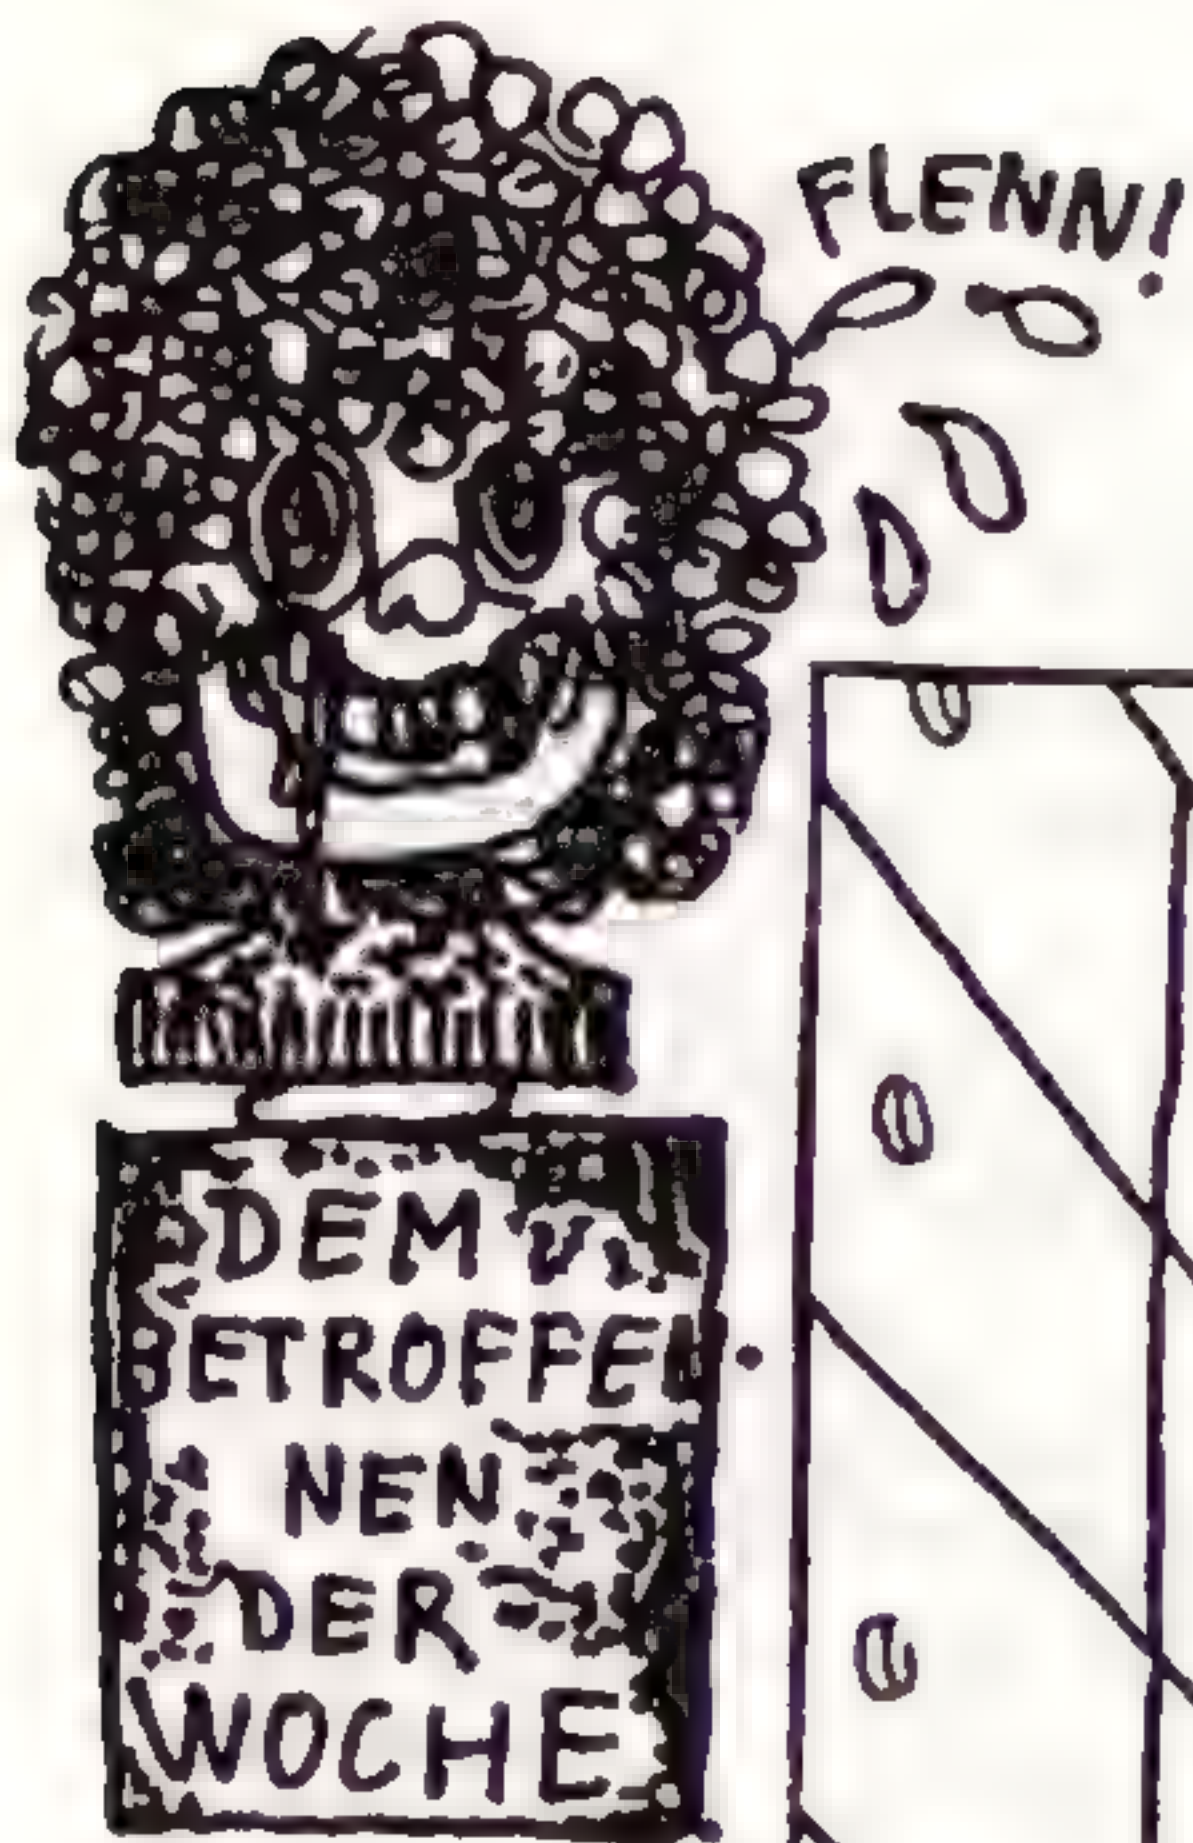 FLENN!
DEM
BETROFFE
NEN
DER
WOCHE